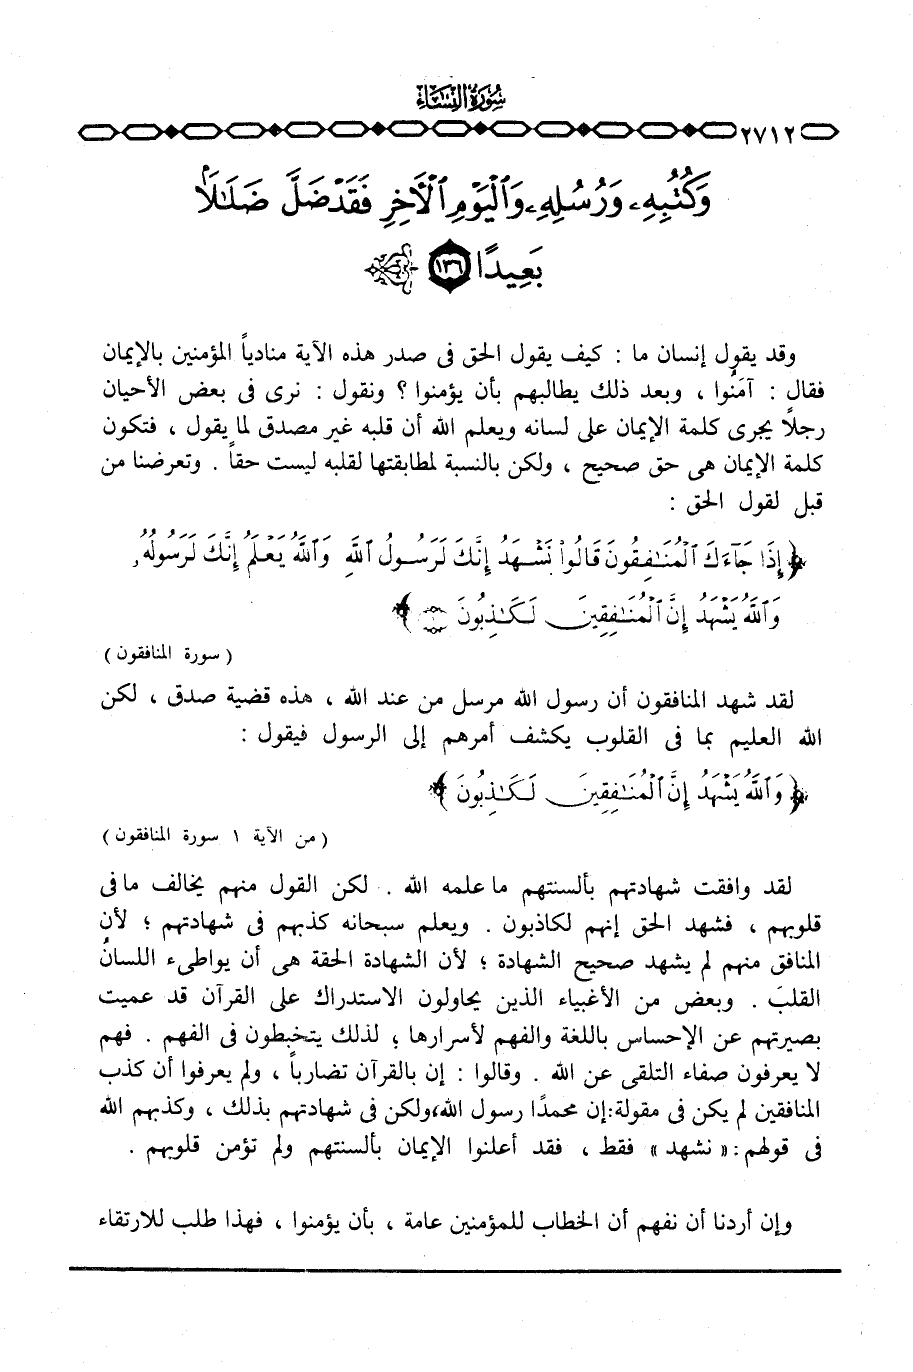 سُورَةُ النِّسَاءِ
٢٧١٢
وَكُتُبِهِۦ وَرُسُلِهِۦ وَٱلْيَوْمِ ٱلْأَخِرِ فَقَدْ ضَلَّ ضَلَٰلًۢا
بَعِيدًا ١٣٦
وقد يقول إنسان ما : كيف يقول الحق فى صدر هذه الآية منادياً المؤمنين بالإيمان
فقال : آمَنُوا ، وبعد ذلك يطالبهم بأن يؤمنوا ؟ ونقول : نرى فى بعض الأحيان
رجلاً يجرى كلمة الإيمان على لسانه ويعلم الله أن قلبه غير مصدق لما يقول ، فتكون
كلمة الإيمان هى حق صحيح ، ولكن بالنسبة لمطابقتها لقلبه ليست حقاً . وتعرضنا من
قبل لقول الحق :
﴿ إِذَا جَآءَكَ ٱلْمُنَٰفِقُونَ قَالُواْ نَشْهَدُ إِنَّكَ لَرَسُولُ ٱللَّهِ وَٱللَّهُ يَعْلَمُ إِنَّكَ لَرَسُولُهُۥ
وَٱللَّهُ يَشْهَدُ إِنَّ ٱلْمُنَٰفِقِينَ لَكَٰذِبُونَ ١ ﴾
( سورة المنافقون )
لقد شهد المنافقون أن رسول الله مرسل من عند الله ، هذه قضية صدق ، لكن
الله العليم بما فى القلوب يكشف أمرهم إلى الرسول فيقول :
﴿ وَٱللَّهُ يَشْهَدُ إِنَّ ٱلْمُنَٰفِقِينَ لَكَٰذِبُونَ ﴾
( من الآية ١ سورة المنافقون )
لقد وافقت شهادتهم بألسنتهم ما علمه الله . لكن القول منهم يخالف ما فى
قلوبهم ، فشهد الحق إنهم لكاذبون . ويعلم سبحانه كذبهم فى شهادتهم ؛ لأن
المنافق منهم لم يشهد صحيح الشهادة ؛ لأن الشهادة الحقة هى أن يواطىء اللسانُ
القلبَ . وبعض من الأغبياء الذين يحاولون الاستدراك على القرآن قد عميت
بصيرتهم عن الإحساس باللغة والفهم لأسرارها ؛ لذلك يتخبطون فى الفهم . فهم
لا يعرفون صفاء التلقى عن الله . وقالوا : إن بالقرآن تضارباً ، ولم يعرفوا أن كذب
المنافقين لم يكن فى مقولة:إن محمدًا رسول الله،ولكن فى شهادتهم بذلك ، وكذبهم الله
فى قولهم : « نشهد » فقط ، فقد أعلنوا الإيمان بألسنتهم ولم تؤمن قلوبهم .
وإن أردنا أن نفهم أن الخطاب للمؤمنين عامة ، بأن يؤمنوا ، فهذا طلب للارتقاء